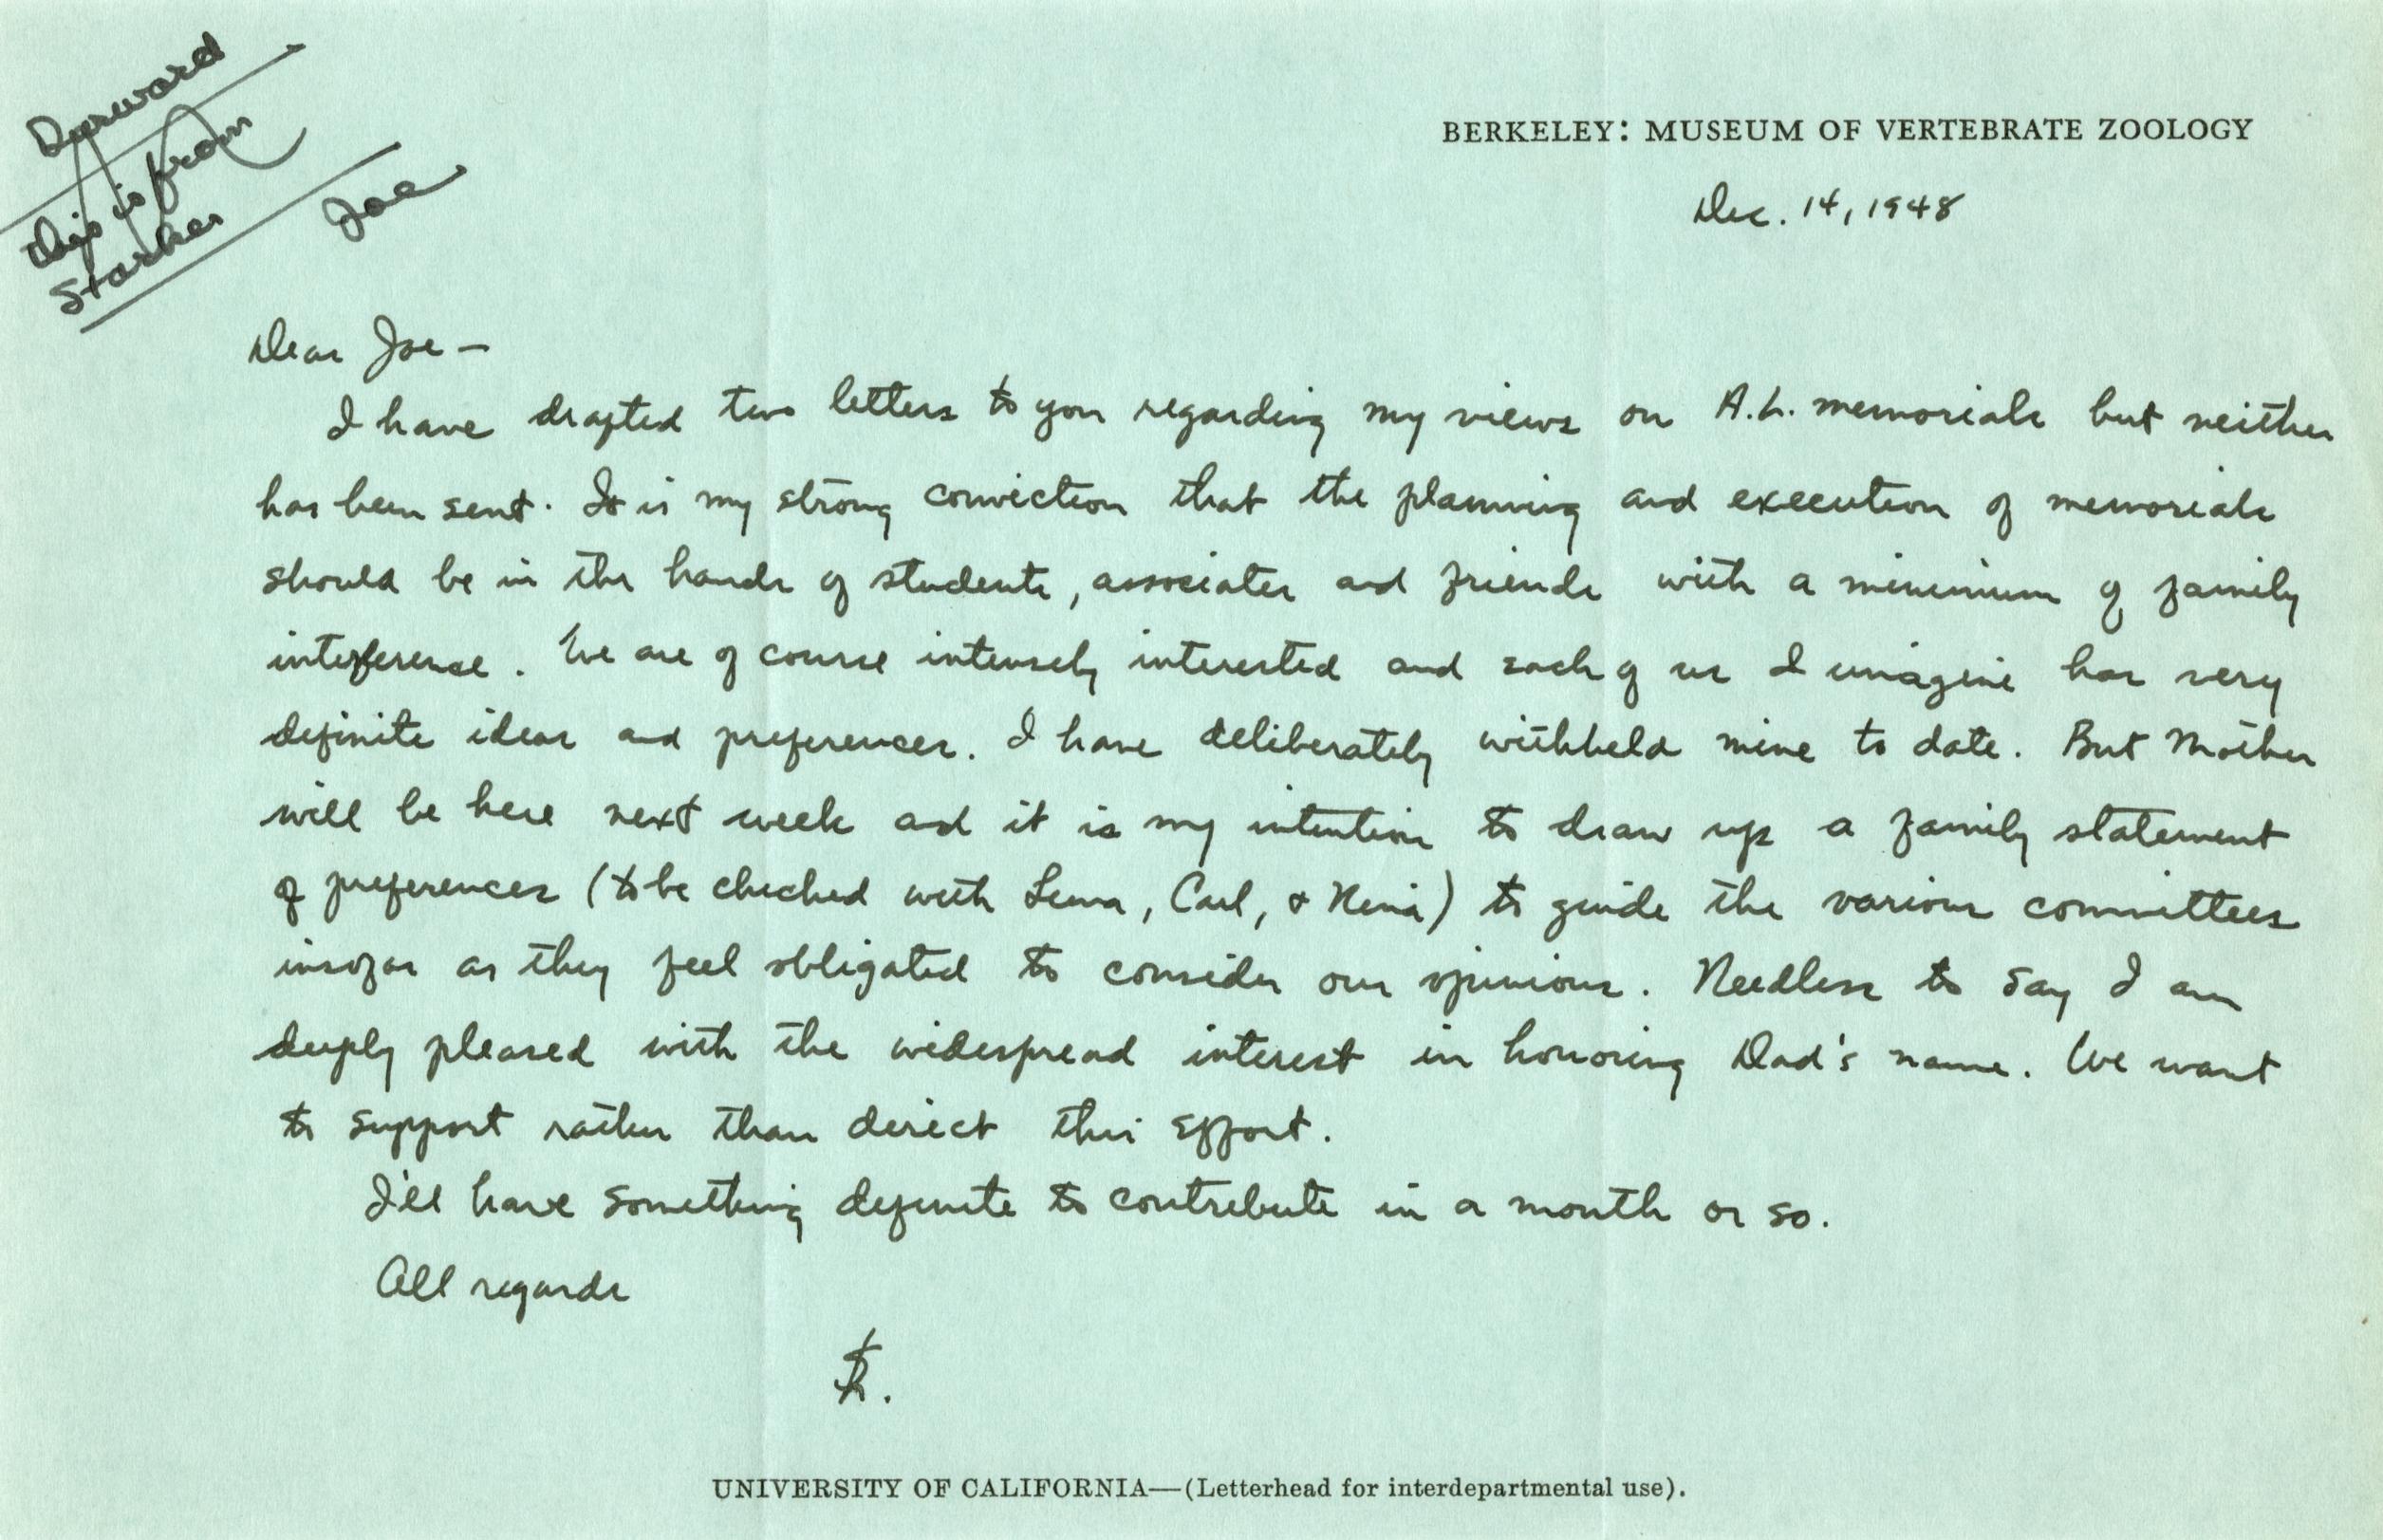 Durward
this is from
Starker
Joe
BERKELEY: MUSEUM OF VERTEBRATE ZOOLOGY
Dec. 14, 1948
Dear Joe —
I have drafted two letters to you regarding my views on A.L. memorials but neither
has been sent. It is my strong conviction that the planning and execution of memorials
should be in the hands of students, associates and friends with a minimum of family
interference. We are of course intensely interested and each of us I imagine has very
definite ideas and preferences. I have deliberately withheld mine to date. But Mother
will be here next week and it is my intention to draw up a family statement
of preferences (to be checked with Luna, Carl, & Nina) to guide the various committees
insofar as they feel obligated to consider our opinions. Needless to say I am
deeply pleased with the widespread interest in honoring Dad's name. We want
to support rather than direct this effort.
I'll have something definite to contribute in a month or so.
All regards
UNIVERSITY OF CALIFORNIA—(Letterhead for interdepartmental use).